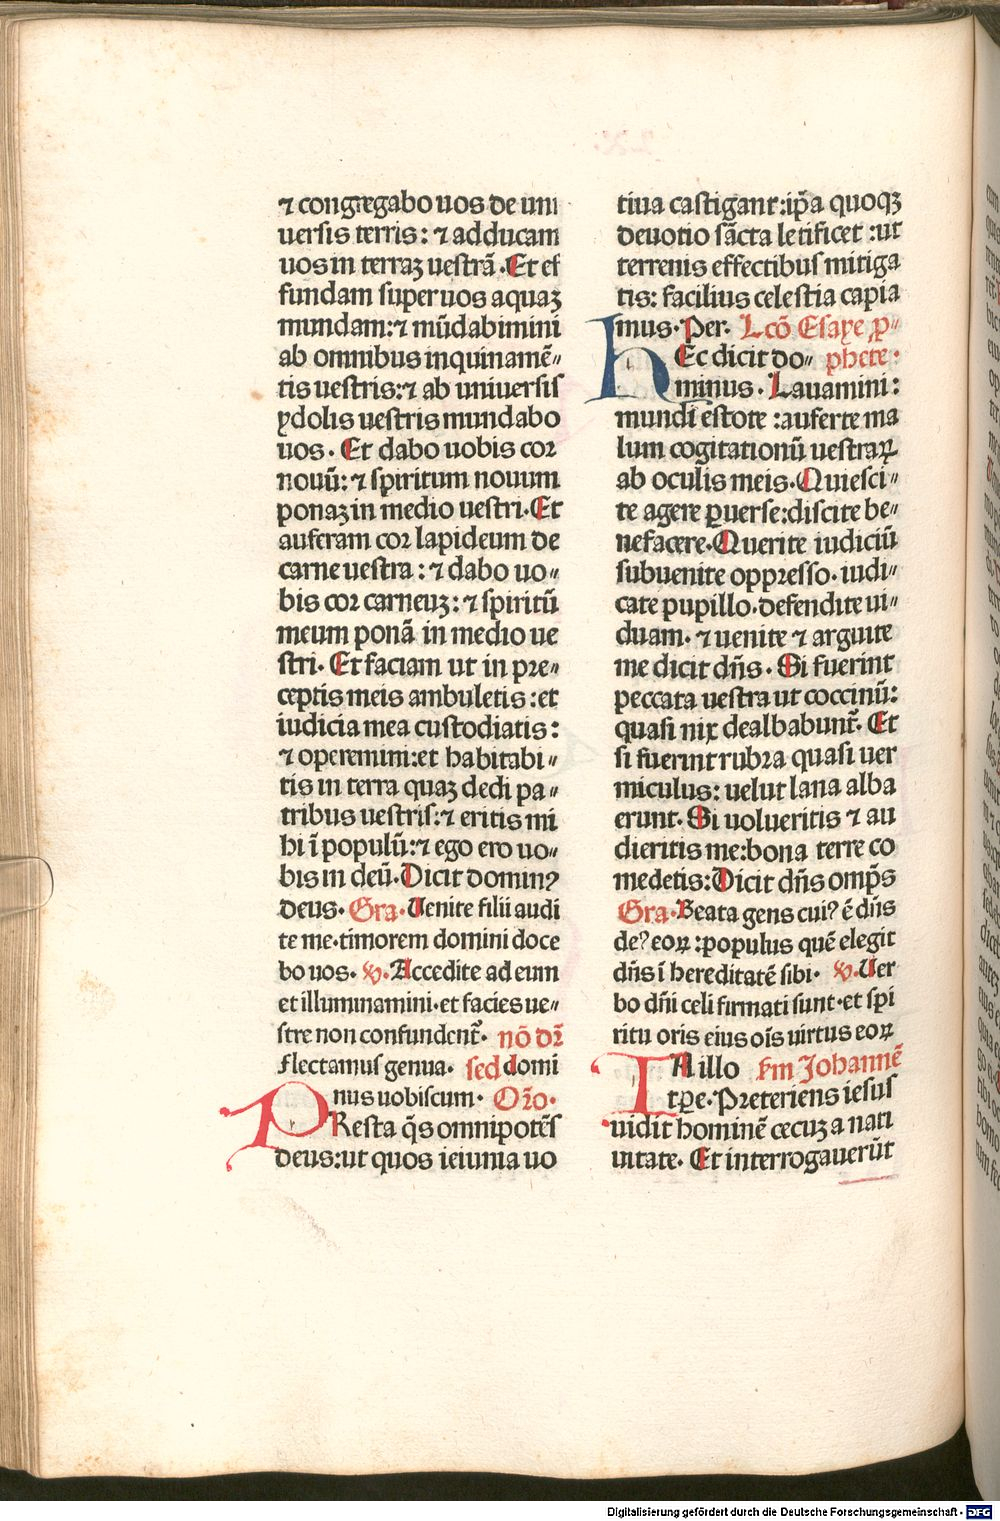 ⁊ congregabo uos de uni
uersis terris: ⁊ adducam
uos in terraꝫ uestrā. Et ef
fundam super uos aquaꝫ
mundam: ⁊ mūdabimini
ab omnibus inquinamē〃
tis uestris: ⁊ ab uniuersis
ydolis uestris mundabo
uos. Et dabo uobis cor
nouū: ⁊ spiritum nouum
ponaꝫ in medio uestri. Et
auferam cor lapideum de
carne uestra: ⁊ dabo uo〃
bis cor carneuꝫ: ⁊ spiritū
meum ponā in medio ue
stri. Et faciam ut in pre〃
ceptis meis ambuletis: et
iudicia mea custodiatis:
⁊ operemini: et habitabi〃
tis in terra quaꝫ dedi pa〃
tribus uestris: ⁊ eritis mi
hi ī populū: ⁊ ego ero uo〃
bis in deū. Dicit dominꝰ
deus. Gra. Uenite filii audi
te me. timorem domini doce
bo uos. ℣. Accedite ad eum
et illuminamini. et facies ue〃
stre non confundent̄. nō dr̄
flectamus genua. sed domi
nus uobiscum. Or̄o.
PResta q̄s omnipotēs
deus: ut quos ieiunia uo
tiua castigant: ip̄a quoqꝫ
deuotio sācta letificet: ut
terrenis effectibus mitiga
tis: facilius celestia capia
mus. Per. Lcō Esaye ꝓ〃
hEc dicit do〃 phete.
minus. Lauamini:
mundi estote: auferte ma
lum cogitationū uestraꝝ
ab oculis meis. Quiesci〃
te agere ꝑuerse: discite be〃
nefacere. Querite iudiciū
subuenite oppresso. iudi〃
cate pupillo. defendite ui〃
duam. ⁊ uenite ⁊ arguite
me dicit dn̄s. Si fuerint
peccata uestra ut coccinū:
quasi nix dealbabunt̄. Et
si fuerint rubra quasi uer
miculus: uelut lana alba
erunt. Si uolueritis ⁊ au
dieritis me: bona terre co
medetis: Dicit dn̄s omp̄s
Gra. Beata gens cuiꝰ ē dn̄s
deꝰ eoꝝ: populus quē elegit
dn̄s ī hereditatē sibi. ℣. Uer
bo dn̄i celi firmati sunt. et spi
ritu oris eius oīs uirtus eoꝝ
IN illo ẜm Johannē
tꝑe. Preteriens iesus
uidit hominē cecuꝫ a nati
uitate. Et interrogauerūt
Digitalisierung gefördert durch die Deutsche Forschungsgemeinschaft - DFG